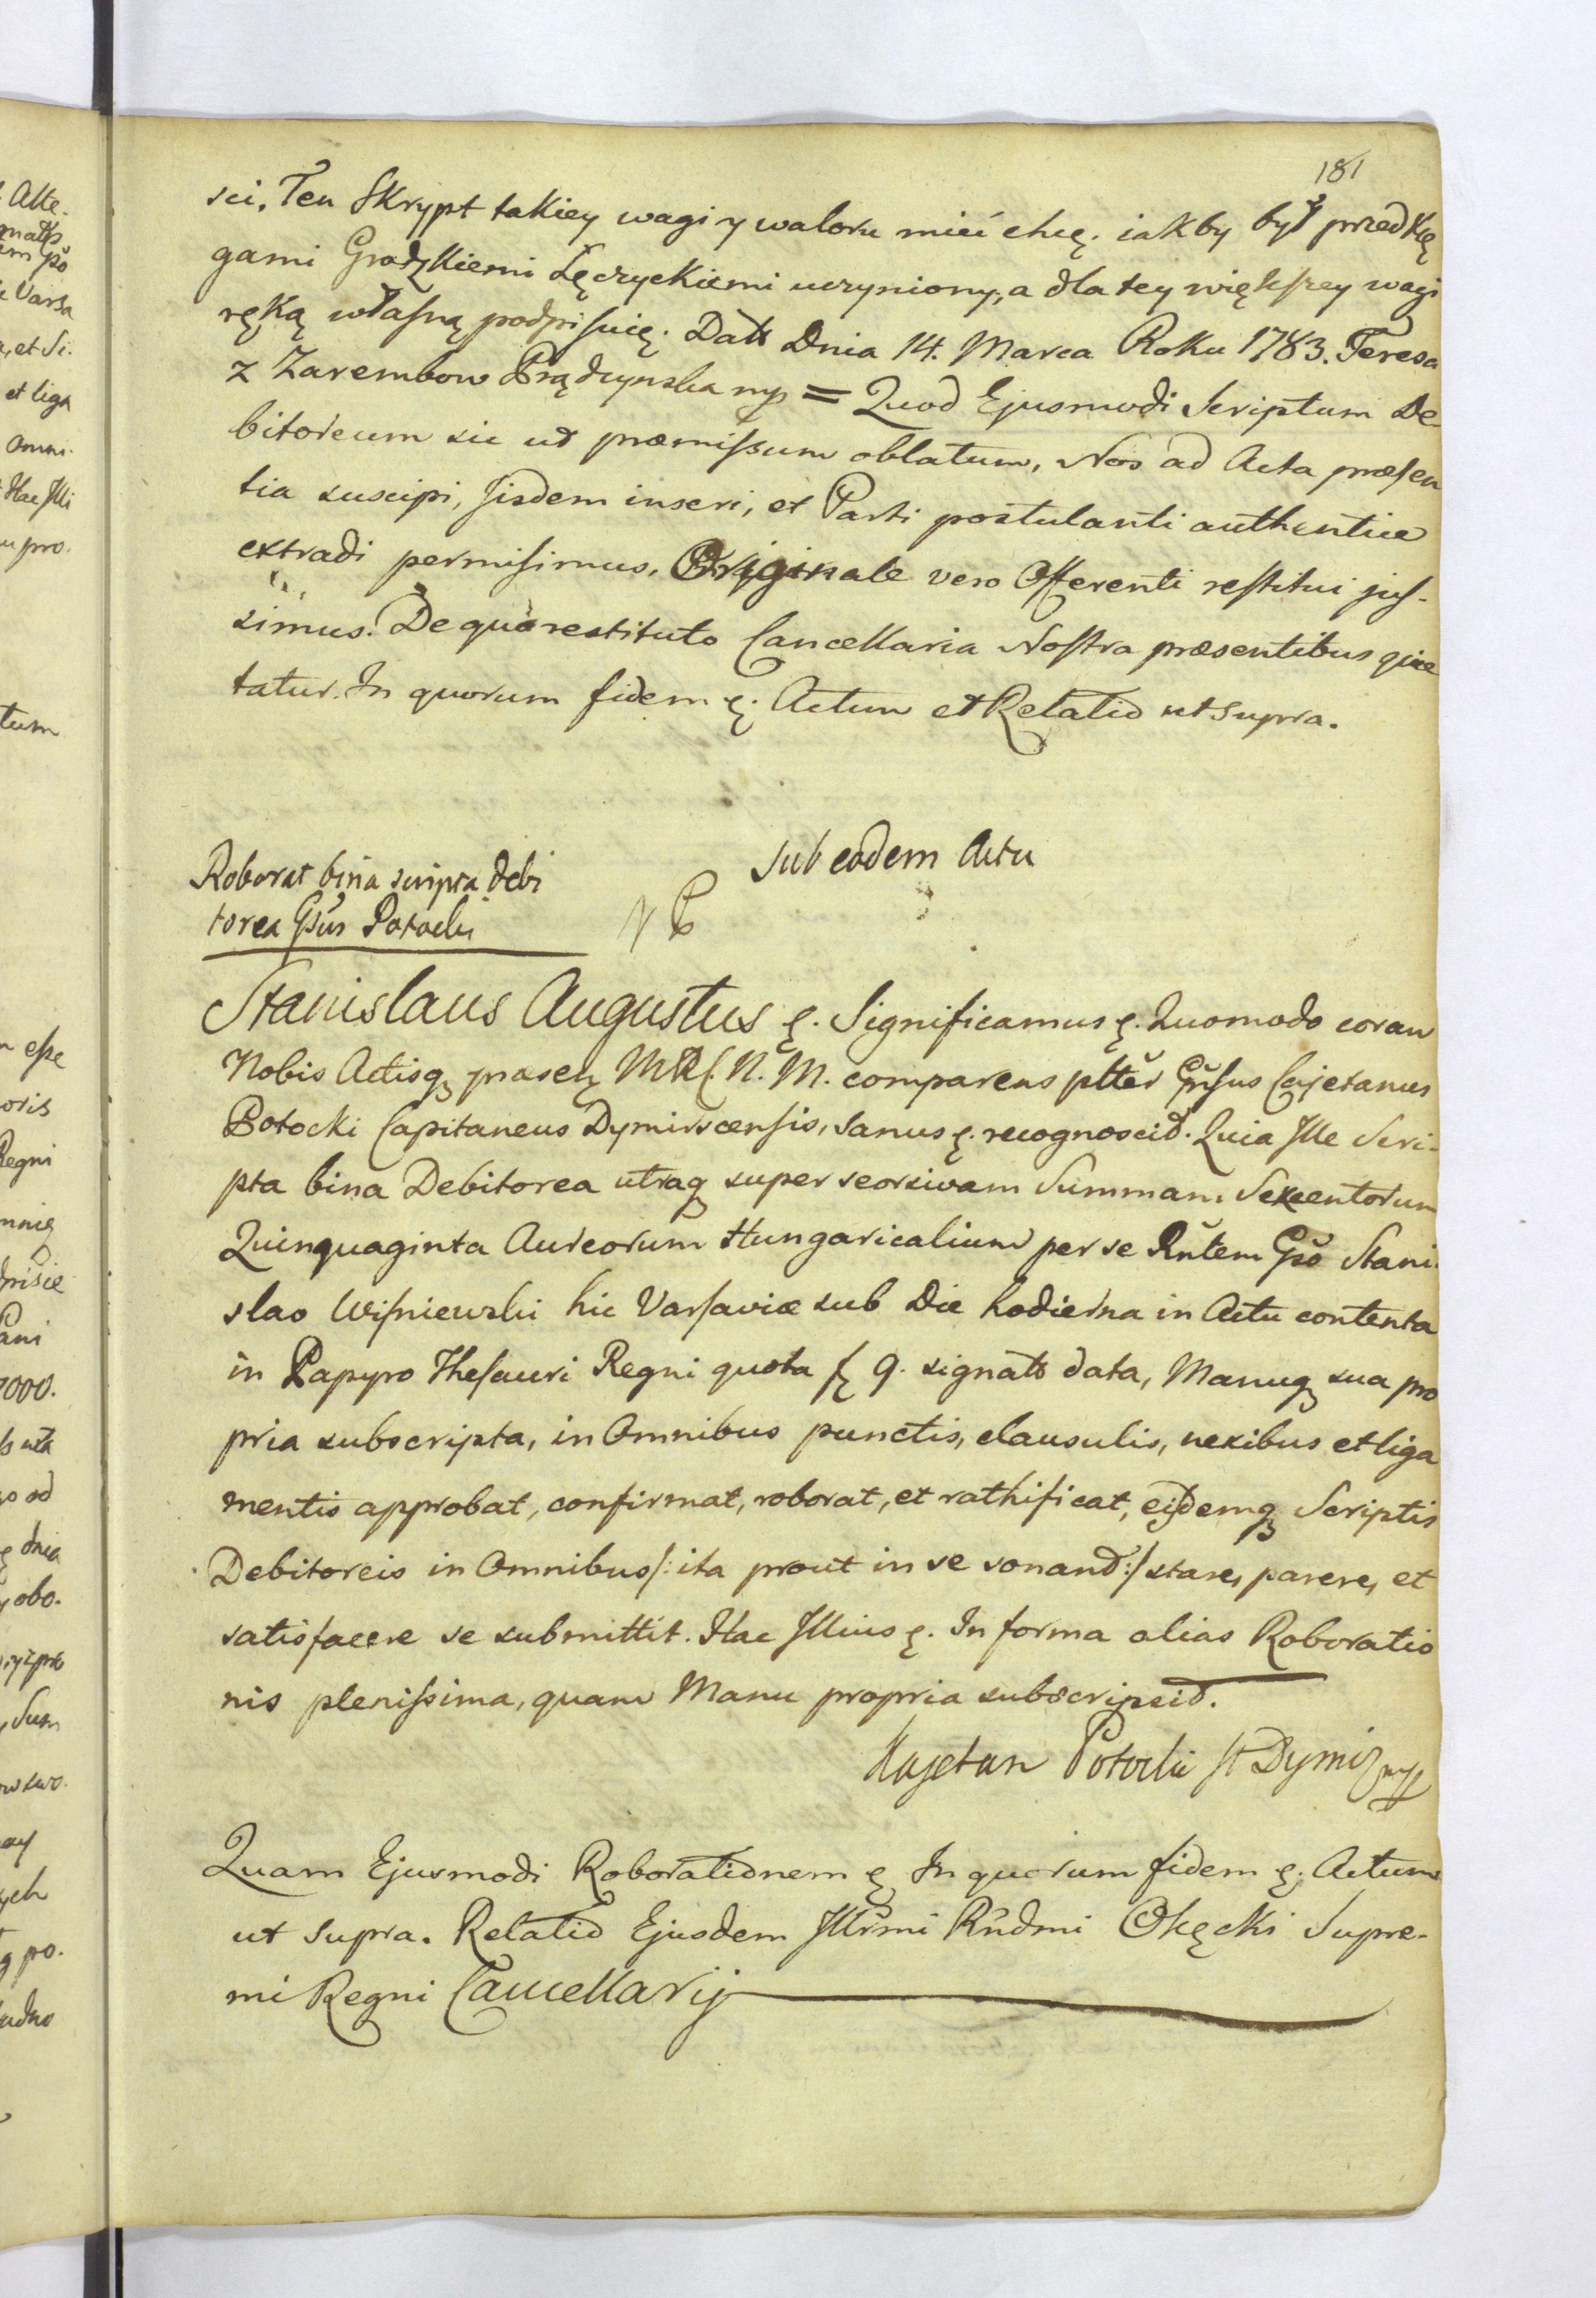 181
sci. Ten Skrypt takiey wagi y waloru mieć chcę. iakby był przed Xię
gami Grodzkiemi Łęczyckiemi uczyniony, a dla tey większey wagi
ręką własną podpisuię. Datt Dnia 14. Marca Roku 1783. Teresa
z Zarembow Prądzynska mp = Quod Ejusmodi Scriptum De-
bitoreum sic ut præmissum oblatum, Nos ad Acta præsen
tia suscipi, Jisdem inseri, et Parti postulanti authentice
extradi permisimus, Originale vero Offerenti restitui jus-
simus. De quo restituto Cancellaria Nostra præsentibus quie
tatur. In quorum fidem ę. Actum et Relatio ut supra.
Sub eodem Actu
Roborat bina scripta debi
torea Gsus Potocki
Stanislaus Augustus ę. Significamus ę. Quomodo coram
Nobis Actisq præse MRC. N. M. comparens pltter Gnsus Cajetanus
Potocki Capitaneus Dymirscensis, sanus ę. recognoscid. Quia Ille Scri-
pta bina Debitorea utraq super seorsivam Summam Sexcentorum
Quinquaginta Aureorum Hungaricalium per se Rntem Gso Stani-
slao Wisniewski hic Varsaviæ sub Die hodierna in Actu contenta
in Papyro Thesauri Regni quota f 9. signato data, Manuq sua pro
pria subscripta, in Omnibus punctis, clausulis, nexibus et liga
mentis approbat, confirmat, roborat, et rathificat, eisdemq Scriptis
Debitoreis in Omnibus /: ita prout in se sonand :/ stare, parere, et
satisfacere se submittit. Hac Illius ę. In forma alias Roboratio
nis plenissima, quam Manu propria subscripsid.
Kajetan Potocki St Dymir mp
Quam Ejusmodi Roborationem ę In quorum fidem ę. Actum
ut supra. Relatio Ejusdem Illrmi Rndmi Okęcki Supre-
mi Regni Cancellarij